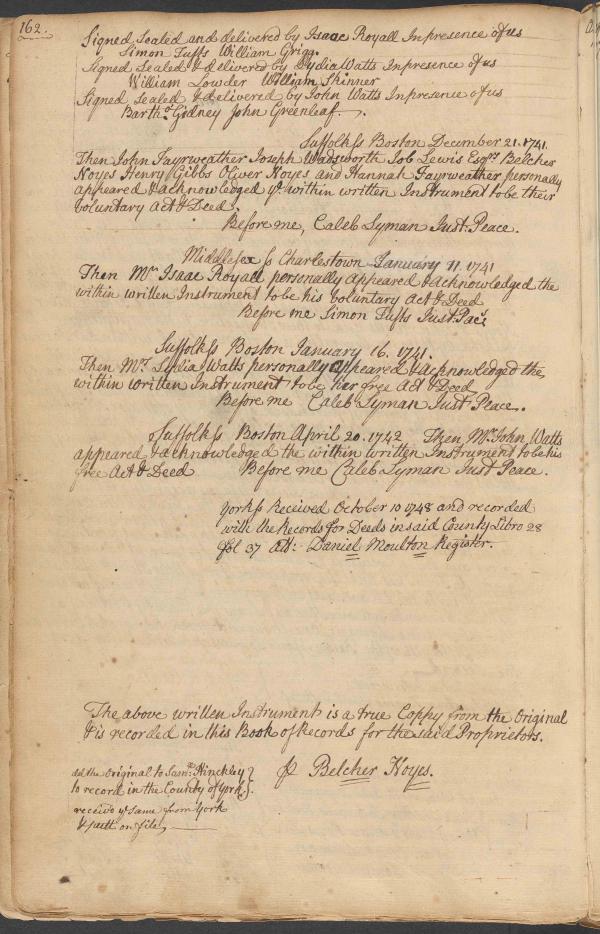 162.
Signed Sealed and delivered by Isaac Royall In presence of us
Simon Tufts William Grigg.
Signed Sealed & delivered by Lydia Watts In presence of us
William Lowder William Skinner
Signed Sealed & delivered by John Watts In presence of us
Barth.o Gidney John Greenleaf.
Suffolk ss Boston December 21. 1741.
Then John Fayrweather Joseph Wadsworth Job Lewis Esqrs Belcher
Noyes Henry Gibbs Oliver Noyes and Hannah Fayrweather personally
appeared & acknowledged ye within written Instrument to be their
voluntary Act & Deed.
Before me, Caleb Lyman Just: Peace.
Middlesex ss Charlestown January 11. 1741
Then Mr Isaac Royall personally appeared & acknowledged the
within written Instrument to be his voluntary Act & Deed
Before me Simon Tufts Just: Pac:
Suffolk ss Boston January 16. 1741.
Then Mrs Lydia Watts personally appeared & acknowledged the
within written Instrument to be her free Act & Deed
Before me Caleb Lyman Just Peace.
Suffolk ss Boston April 20. 1742 Then Mr John Watts
appeared & acknowledged the within written Instrument to be his
free Act & Deed Before me Caleb Lyman Just Peace.
York ss Received October 10 1748 and recorded
with the Records for Deeds in said County Libro 28
fol 37 Att: Daniel Moulton Register.
The above written Instrument is a true Coppy from the Original
& is recorded in this Book of Records for the said Proprietors.
dd. the Original to Sam.ll Hinckley
to record in the County of York.
receiv'd ye same from York
& putt on file,
℔ Belcher Noyes.